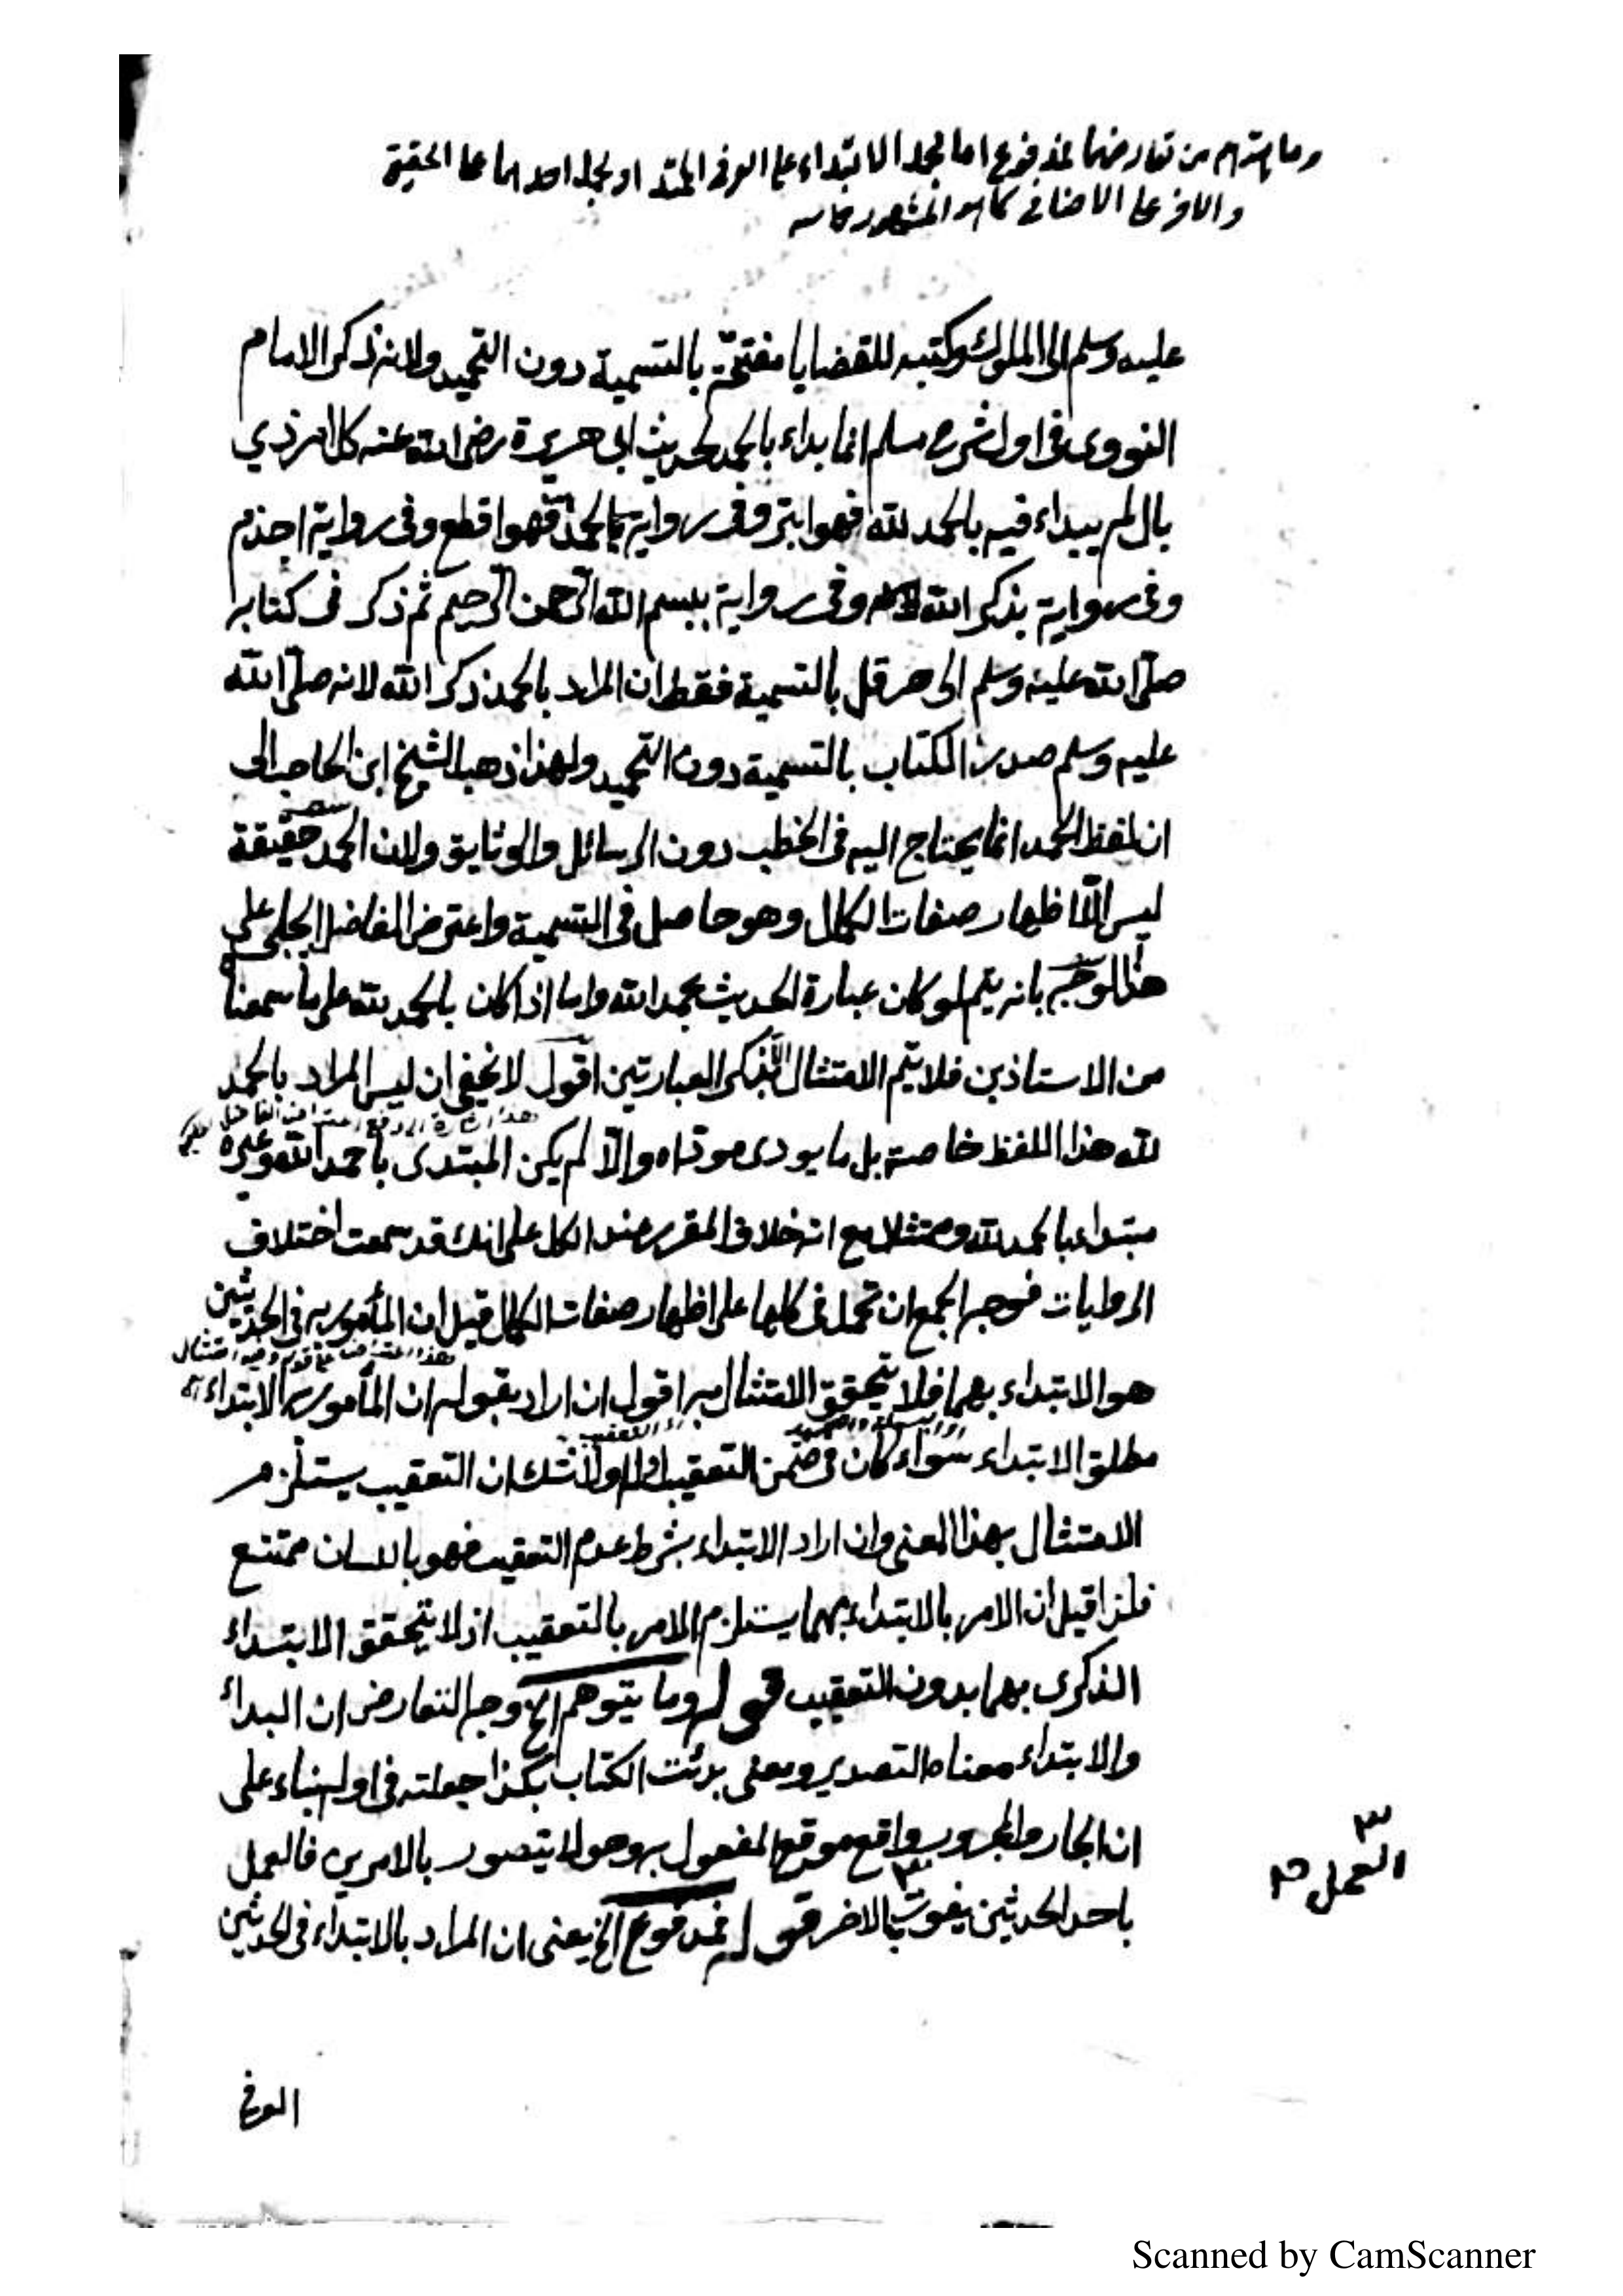 وما يتوهم من تعارضهما فمدفوع اما بحمل الابتداء على العرفى الممتد او بحمل احدهما على الحقيقى
والاخر على الاضافى كما هو المشهور
عليه وسلم الى الملوك وكتبه للقضايا مفتتحة بالتسمية دون التحميد ولانه ذكر الامام
النووى فى اول شرح مسلم انما بداء بالحمد لحديث ابى هريرة رضى الله عنه كل امر ذي
بال لم يبداء فيه بالحمد لله فهو ابتر وفى رواية بالحمد فهو اقطع وفى رواية اجذم
وفى رواية بذكر الله وفى رواية ببسم الله الرحمن الرحيم ثم ذكر فى كتابه
صلى الله عليه وسلم الى هرقل بالتسمية فقط ان المراد بالحمد ذكر الله لانه صلى الله
عليه وسلم صدر الكتاب بالتسمية دون التحميد ولهذا ذهب الشيخ ابن الحاجب الى
ان لفظ الحمد انما يحتاج اليه فى الخطب دون الرسائل والوثايق ولان الحمد حقيقة
ليس الا اظهار صفات الكمال وهو حاصل فى التسمية واعترض الفاضل الجلبى على
هذا الوجه بانه يتم لو كان عبارة الحديث بحمد الله واما اذا كان بالحمد لله على ما سمعنا
من الاستاذين فلا يتم الامتثال الا بذكر العبارتين اقول لا يخفى ان ليس المراد بالحمد
لله هذا اللفظ خاصة بل ما يودى موداه والا لم يكن المبتدى باحمد الله وغيره
مبتداء بالحمد لله وممتثلا مع انه خلاف المقرر عند الكل على انك قد سمعت اختلاف
الروايات فوجه الجمع ان تحمل فى كلها على اظهار صفات الكمال قيل ان المأمور به فى الحديثين
هو الابتداء بهما فلا يتحقق الامتثال به اقول ان اراد بقوله ان المأمور به الابتداء
مطلق الابتداء سواء كان فى ضمن التعقيب او لا ولا شك ان التعقيب يستلزم
الامتثال بهذا المعنى وان اراد الابتداء بشرط عدم التعقيب فهو باللسان ممتنع
فلذا قيل ان الامر بالابتداء بهما يستلزم الامر بالتعقيب اذ لا يتحقق الابتداء
الذكرى بهما بدون التعقيب قوله وما يتوهم الخ وجه التعارض ان البداء
والابتداء معناه التصدير ومعنى بدئت الكتاب بكذا جعلته فى اوله بناء على
ان الجار والمجرور واقع موقع المفعول به وهو لا يتصور بالامرين فالعمل
باحد الحديثين يفوت بالاخر قوله فمدفوع الخ يعنى ان المراد بالابتداء فى الحديثين
العمل صح
العرفى
Scanned by CamScanner